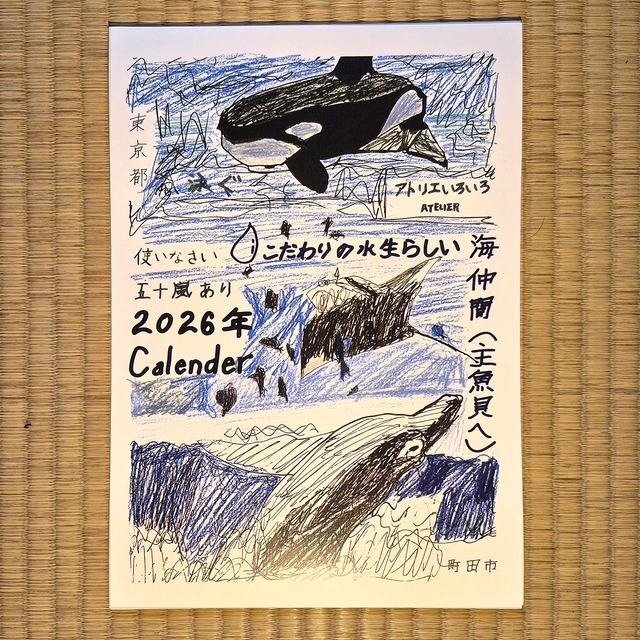 東京都
泳ぐ
アトリエいろいろ
ATELIER
使いなさい
こだわりの水生らしい
海仲間(主魚貝へ)
五十嵐あり
2026年
Calender
町田市